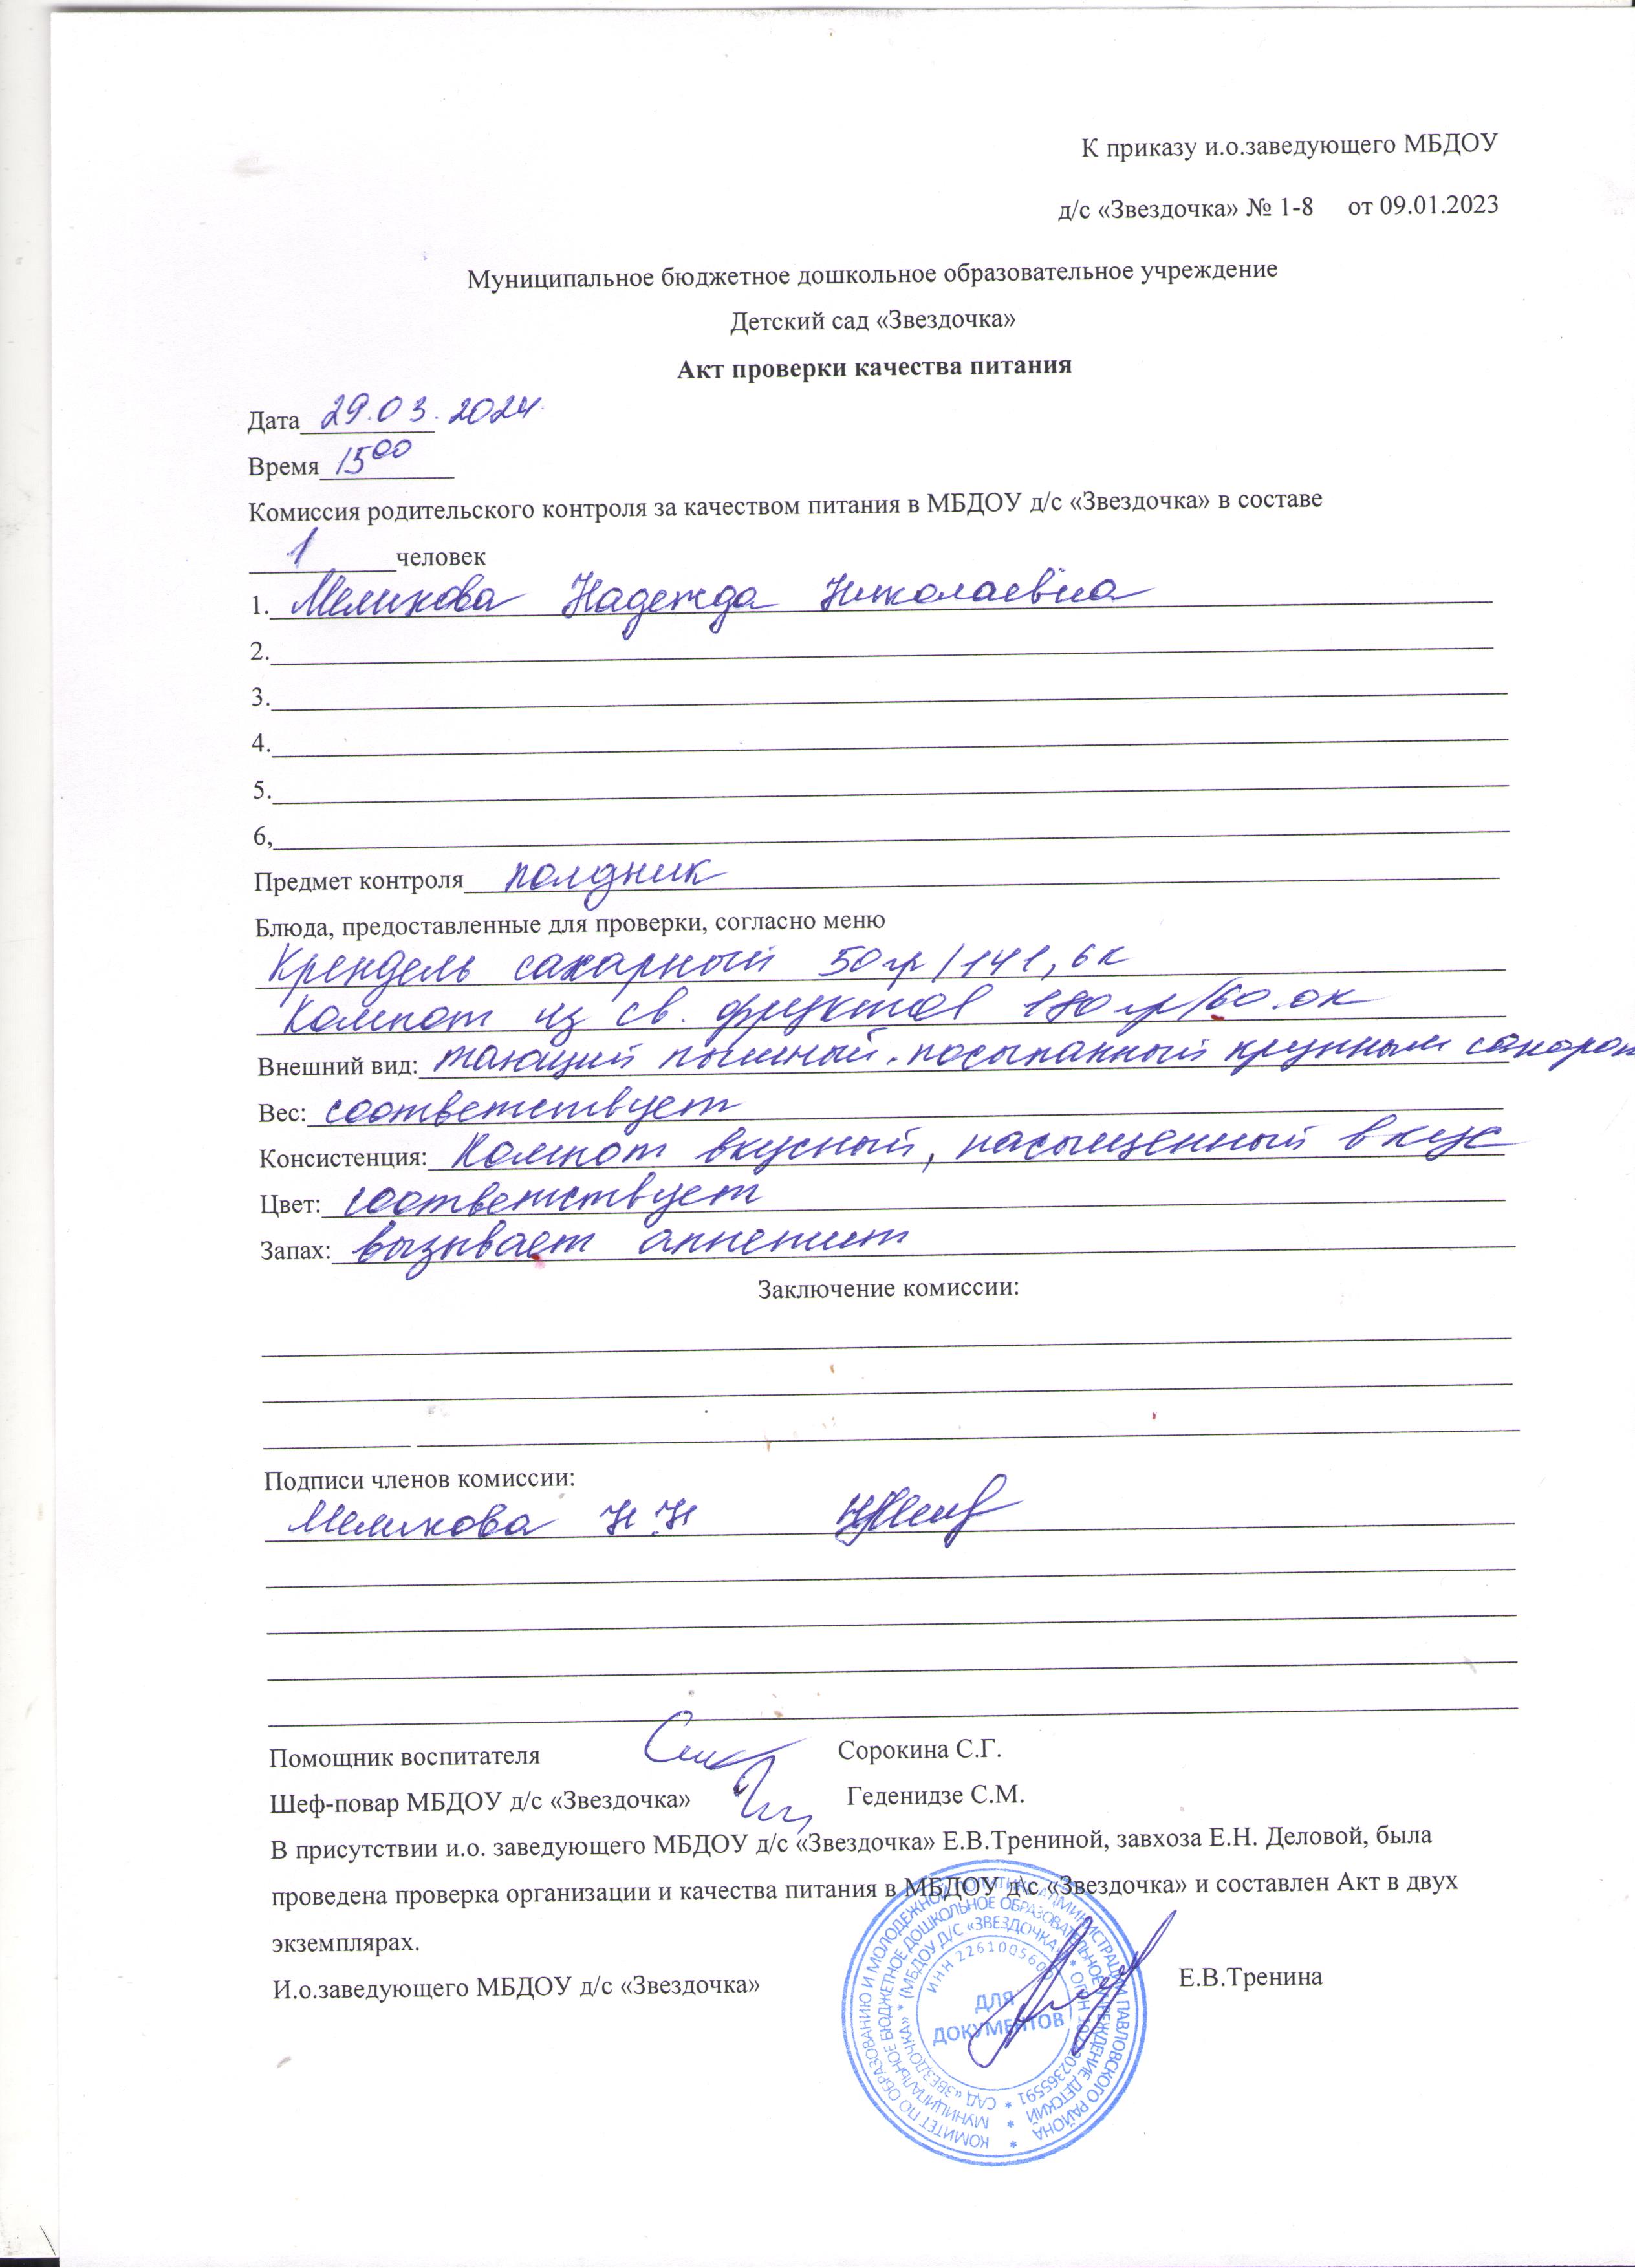 К приказу и.о.заведующего МБДОУ
д/с «Звездочка» № 1-8 от 09.01.2023
Муниципальное бюджетное дошкольное образовательное учреждение
Детский сад «Звездочка»
Акт проверки качества питания
Дата 29.03.2024
Время 15 00
Комиссия родительского контроля за качеством питания в МБДОУ д/с «Звездочка» в составе
1 человек
1. Меликова Надежда Николаевна
2.
3.
4.
5.
6,
Предмет контроля полдник
Блюда, предоставленные для проверки, согласно меню
Крендель сахарный 50гр/141,6к
Компот из св. фруктов 180гр/60.0к
Внешний вид: тающий пышный, посыпанный крупным сахаром
Вес: соответствует
Консистенция: Компот вкусный, насыщенный вкус
Цвет: соответствует
Запах: вызывает аппетит
Заключение комиссии:
Подписи членов комиссии:
Меликова Н.Н
Помощник воспитателя Сорокина С.Г.
Шеф-повар МБДОУ д/с «Звездочка» Геденидзе С.М.
В присутствии и.о. заведующего МБДОУ д/с «Звездочка» Е.В.Трениной, завхоза Е.Н. Деловой, была
проведена проверка организации и качества питания в МБДОУ д/с «Звездочка» и составлен Акт в двух
экземплярах.
И.о.заведующего МБДОУ д/с «Звездочка» Е.В.Тренина
КОМИТЕТ ПО ОБРАЗОВАНИЮ И МОЛОДЕЖНОЙ ПОЛИТИКЕ АДМИНИСТРАЦИИ ПАВЛОВСКОГО РАЙОНА *
МУНИЦИПАЛЬНОЕ БЮДЖЕТНОЕ ДОШКОЛЬНОЕ ОБРАЗОВАТЕЛЬНОЕ УЧРЕЖДЕНИЕ ДЕТСКИЙ *
САД «ЗВЕЗДОЧКА» * (МБДОУ Д/С «ЗВЕЗДОЧКА») * ОГРН
ИНН
ДЛЯ
ДОКУМЕНТОВ